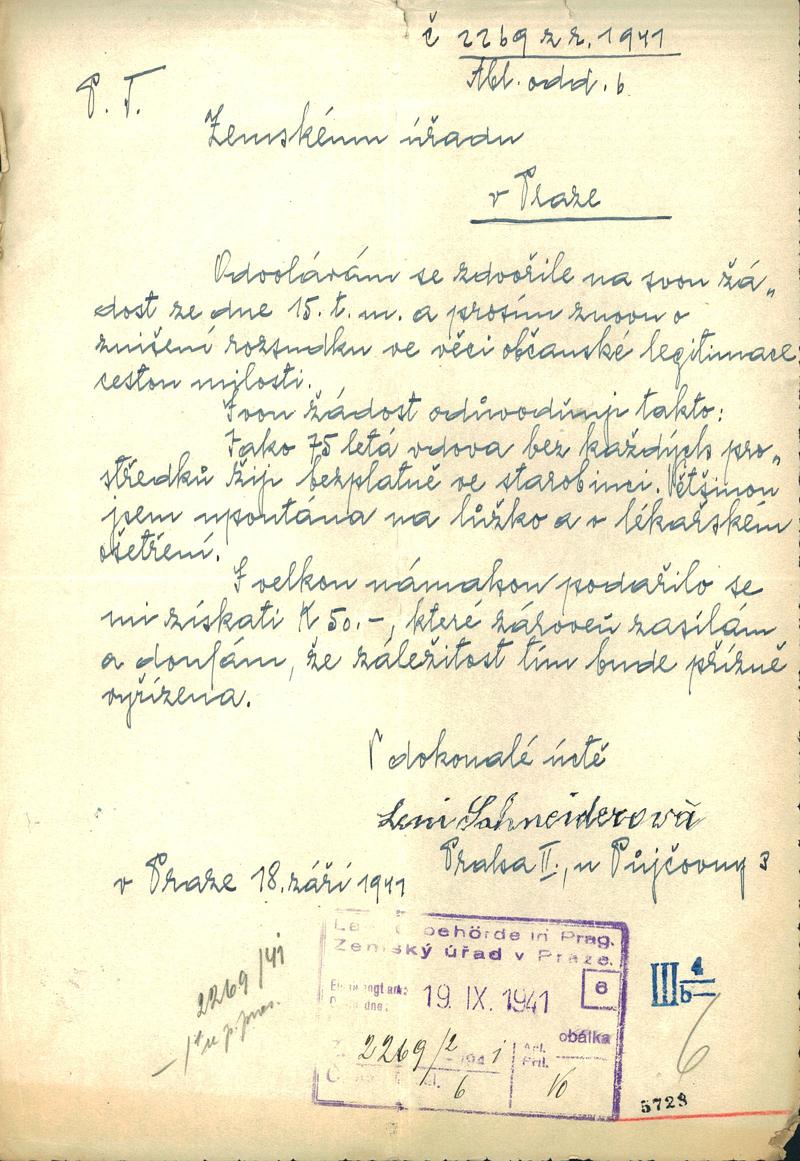 č 2269 z r. 1941
Abl. odd. 6
P. T.
Zemskému úřadu
v Praze
Odvolávám se zdvořile na svou žá„
dost ze dne 15. t. m. a prosím znovu o
zničení rozsudku ve věci občanské legitimace
cestou milosti.
Svou žádost odůvodňuji takto:
Jako 75 letá vdova bez každých pro„
středků žiji bezplatně ve starobinci. Většinou
jsem upoutána na lůžko a v lékařském
ošetření.
S velkou námahou podařilo se
mi získati K 50.-, které zároveň zasílám
a doufám, že záležitost tím bude přízně
vyřízena.
V dokonalé úctě
Leni Schneiderová
Praha II., u Půjčovny 3
v Praze 18. září 1941
2269/41
behörde in Prag.
Zemský úřad v Praze.
6
19. IX. 1941
obálka
2269/2
6
III 4
b
5723